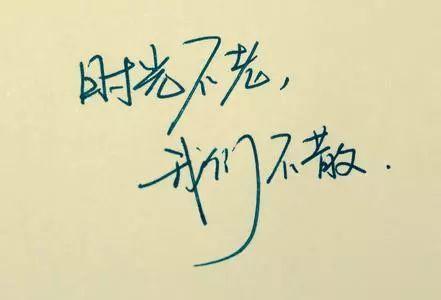 时光不老，
我们不散.